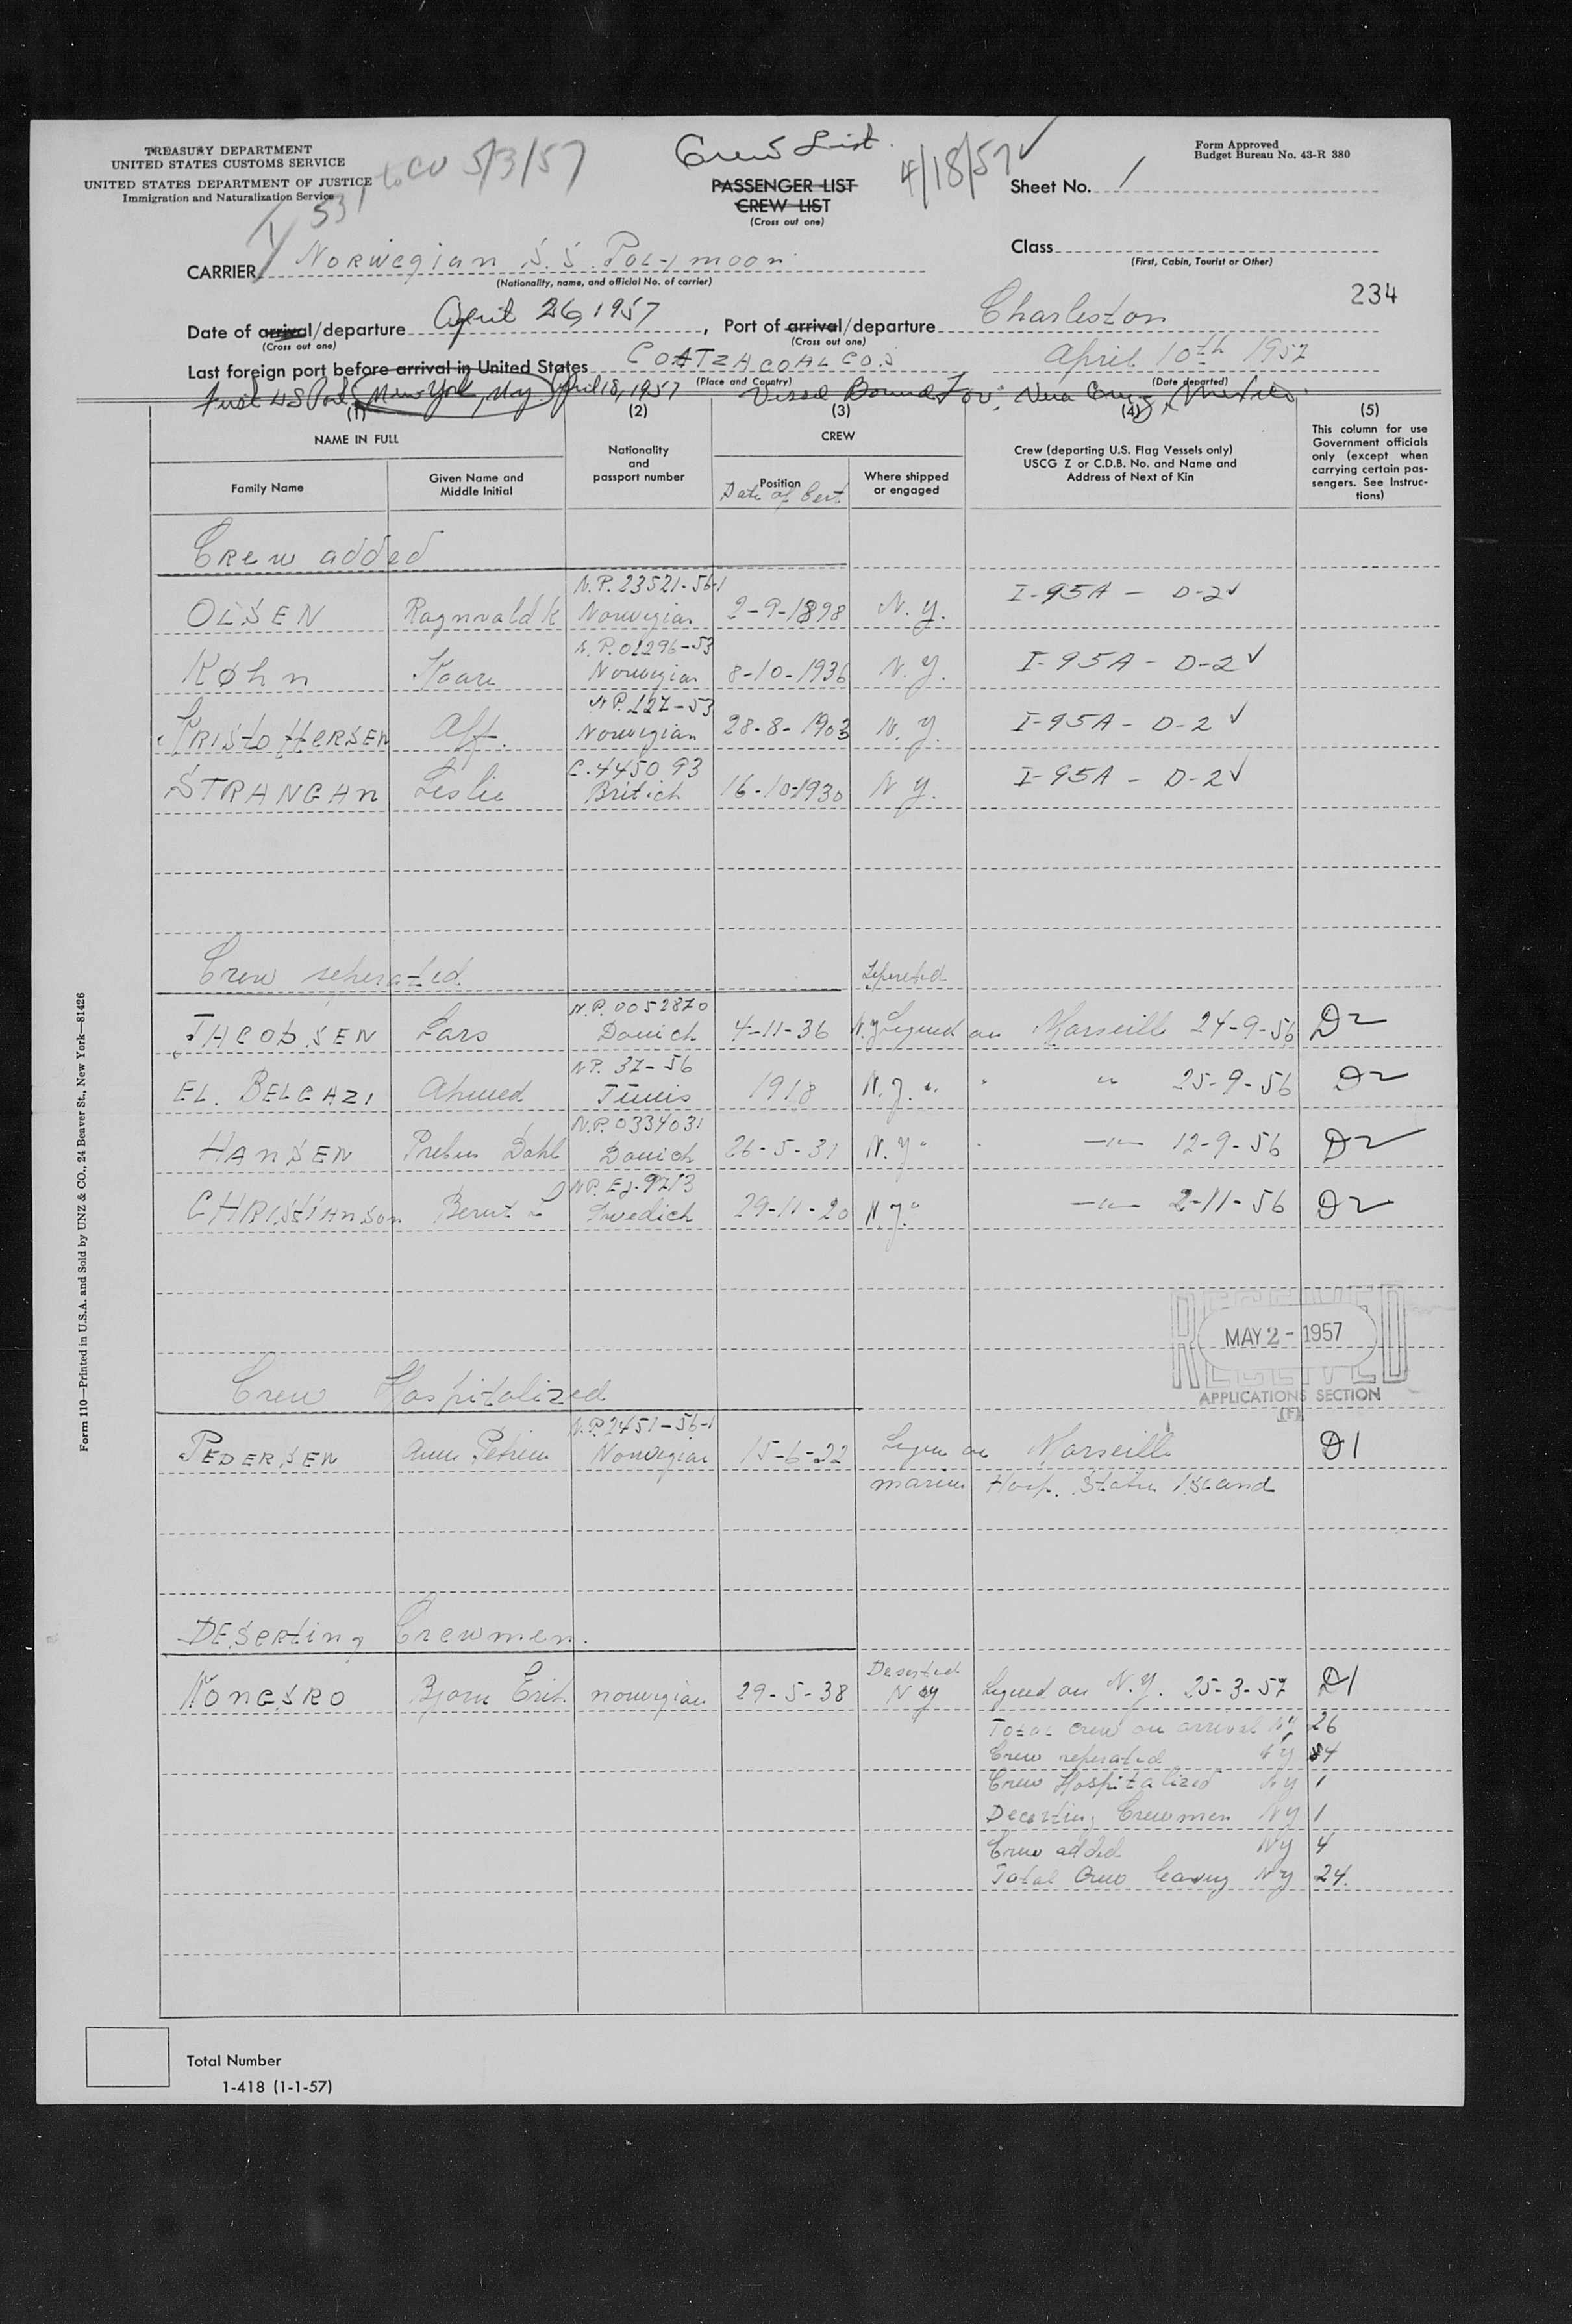 TREASURY DEPARTMENT
UNITED STATES CUSTOMS SERVICE
UNITED STATES DEPARTMENT OF JUSTICE
Immigration and Naturalization Service
to CO 5/3/57
53
Crew List.
PASSENGER LIST
CREW LIST
(Cross out one)
4/18/57
Form Approved
Budget Bureau No. 43-R 380
Sheet No. 1
Class
(First, Cabin, Tourist or Other)
CARRIER Norwegian S.S. Polymoon
(Nationality, name, and official No. of carrier)
234
Date of arrival/departure April 26, 1957, Port of arrival/departure Charleston
(Cross out one) (Cross out one)
Last foreign port before arrival in United States COATZACOALCOS April 10th 1957
(Place and Country) (Date departed)
First US Port New York, Ny April 18, 1957 Vessel Bound For: Vera Cruz, Mexico.
(1) (2) (3) (4) (5)
NAME IN FULL Nationality and passport number CREW Crew (departing U.S. Flag Vessels only) USCG Z or C.D.B. No. and Name and Address of Next of Kin This column for use Government officials only (except when carrying certain passengers. See Instructions)
Family Name Given Name and Middle Initial Position Where shipped or engaged
Date of
Crew added
N.P. 23521-56-1
OLSEN Ragnvald K Norwegian 2-9-1898 N.Y. I-95A - D-2
N.P. 01296-53
Køhn Kaare Norwegian 8-10-1936 N.Y. I-95A - D-2
N.P. 127-53
KRISTOFFERSEN Alf. Norwegian 28-8-1903 N.Y. I-95A - D-2
C. 445093
STRANGAN Leslie Britich 16-10-1930 N Y. I-95A - D-2
Crew seperated Seperated
N.P. 0052870
JACOBSEN Lars Danich 4-11-36 N.Y Signed on Marseille 24-9-56 D2
N.P. 37-56
EL. BELGAZI Ahmed Tunis 1918 N.Y. " " " 25-9-56 D2
N.P. 0334031
HANSEN Preben Dahl Danich 26-5-31 N.Y " " —"— 12-9-56 D2
N.P. EJ. 9213
CHRISTIANSON Bernt Swedich 29-11-20 N.Y. " —"— 2-11-56 D2
RECEIVED
MAY 2 - 1957
APPLICATIONS SECTION
(F)
Crew Hospitalized
N.P. 2451-56-1
PEDERSEN Anne Petrine Norwegian 15-6-22 Signed on Marseille D1
marine Hosp. Staten Island
DEserting Crewmen.
Deserted
KONGSRO Bjorn Erik. norwegian 29-5-38 N Y Signed on N.Y. 25-3-57 D1
Total crew on arrival NY 26
Crew seperated NY 4
Crew Hospitalized NY 1
Decerting Crewmen NY 1
Crew added NY 4
Total Crew leaving NY 24.
Total Number
1-418 (1-1-57)
Form 110—Printed in U.S.A. and Sold by UNZ & CO., 24 Beaver St., New York—81426